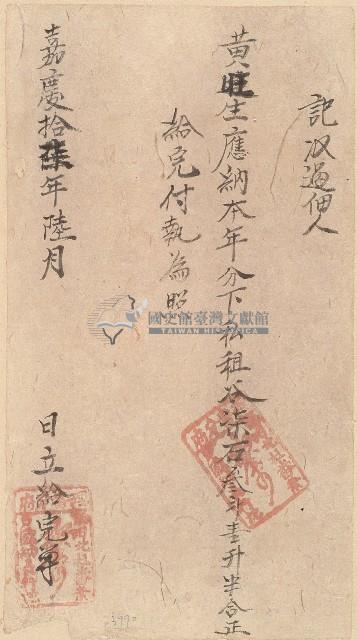 記收過佃人
黃旺生應納本年分下私租谷柒石叁斗壹升半合正
給完付執為照
國史館臺灣文獻館
TAIWAN HISTORICA
嘉慶拾柒年陸月
日立給完單
3990